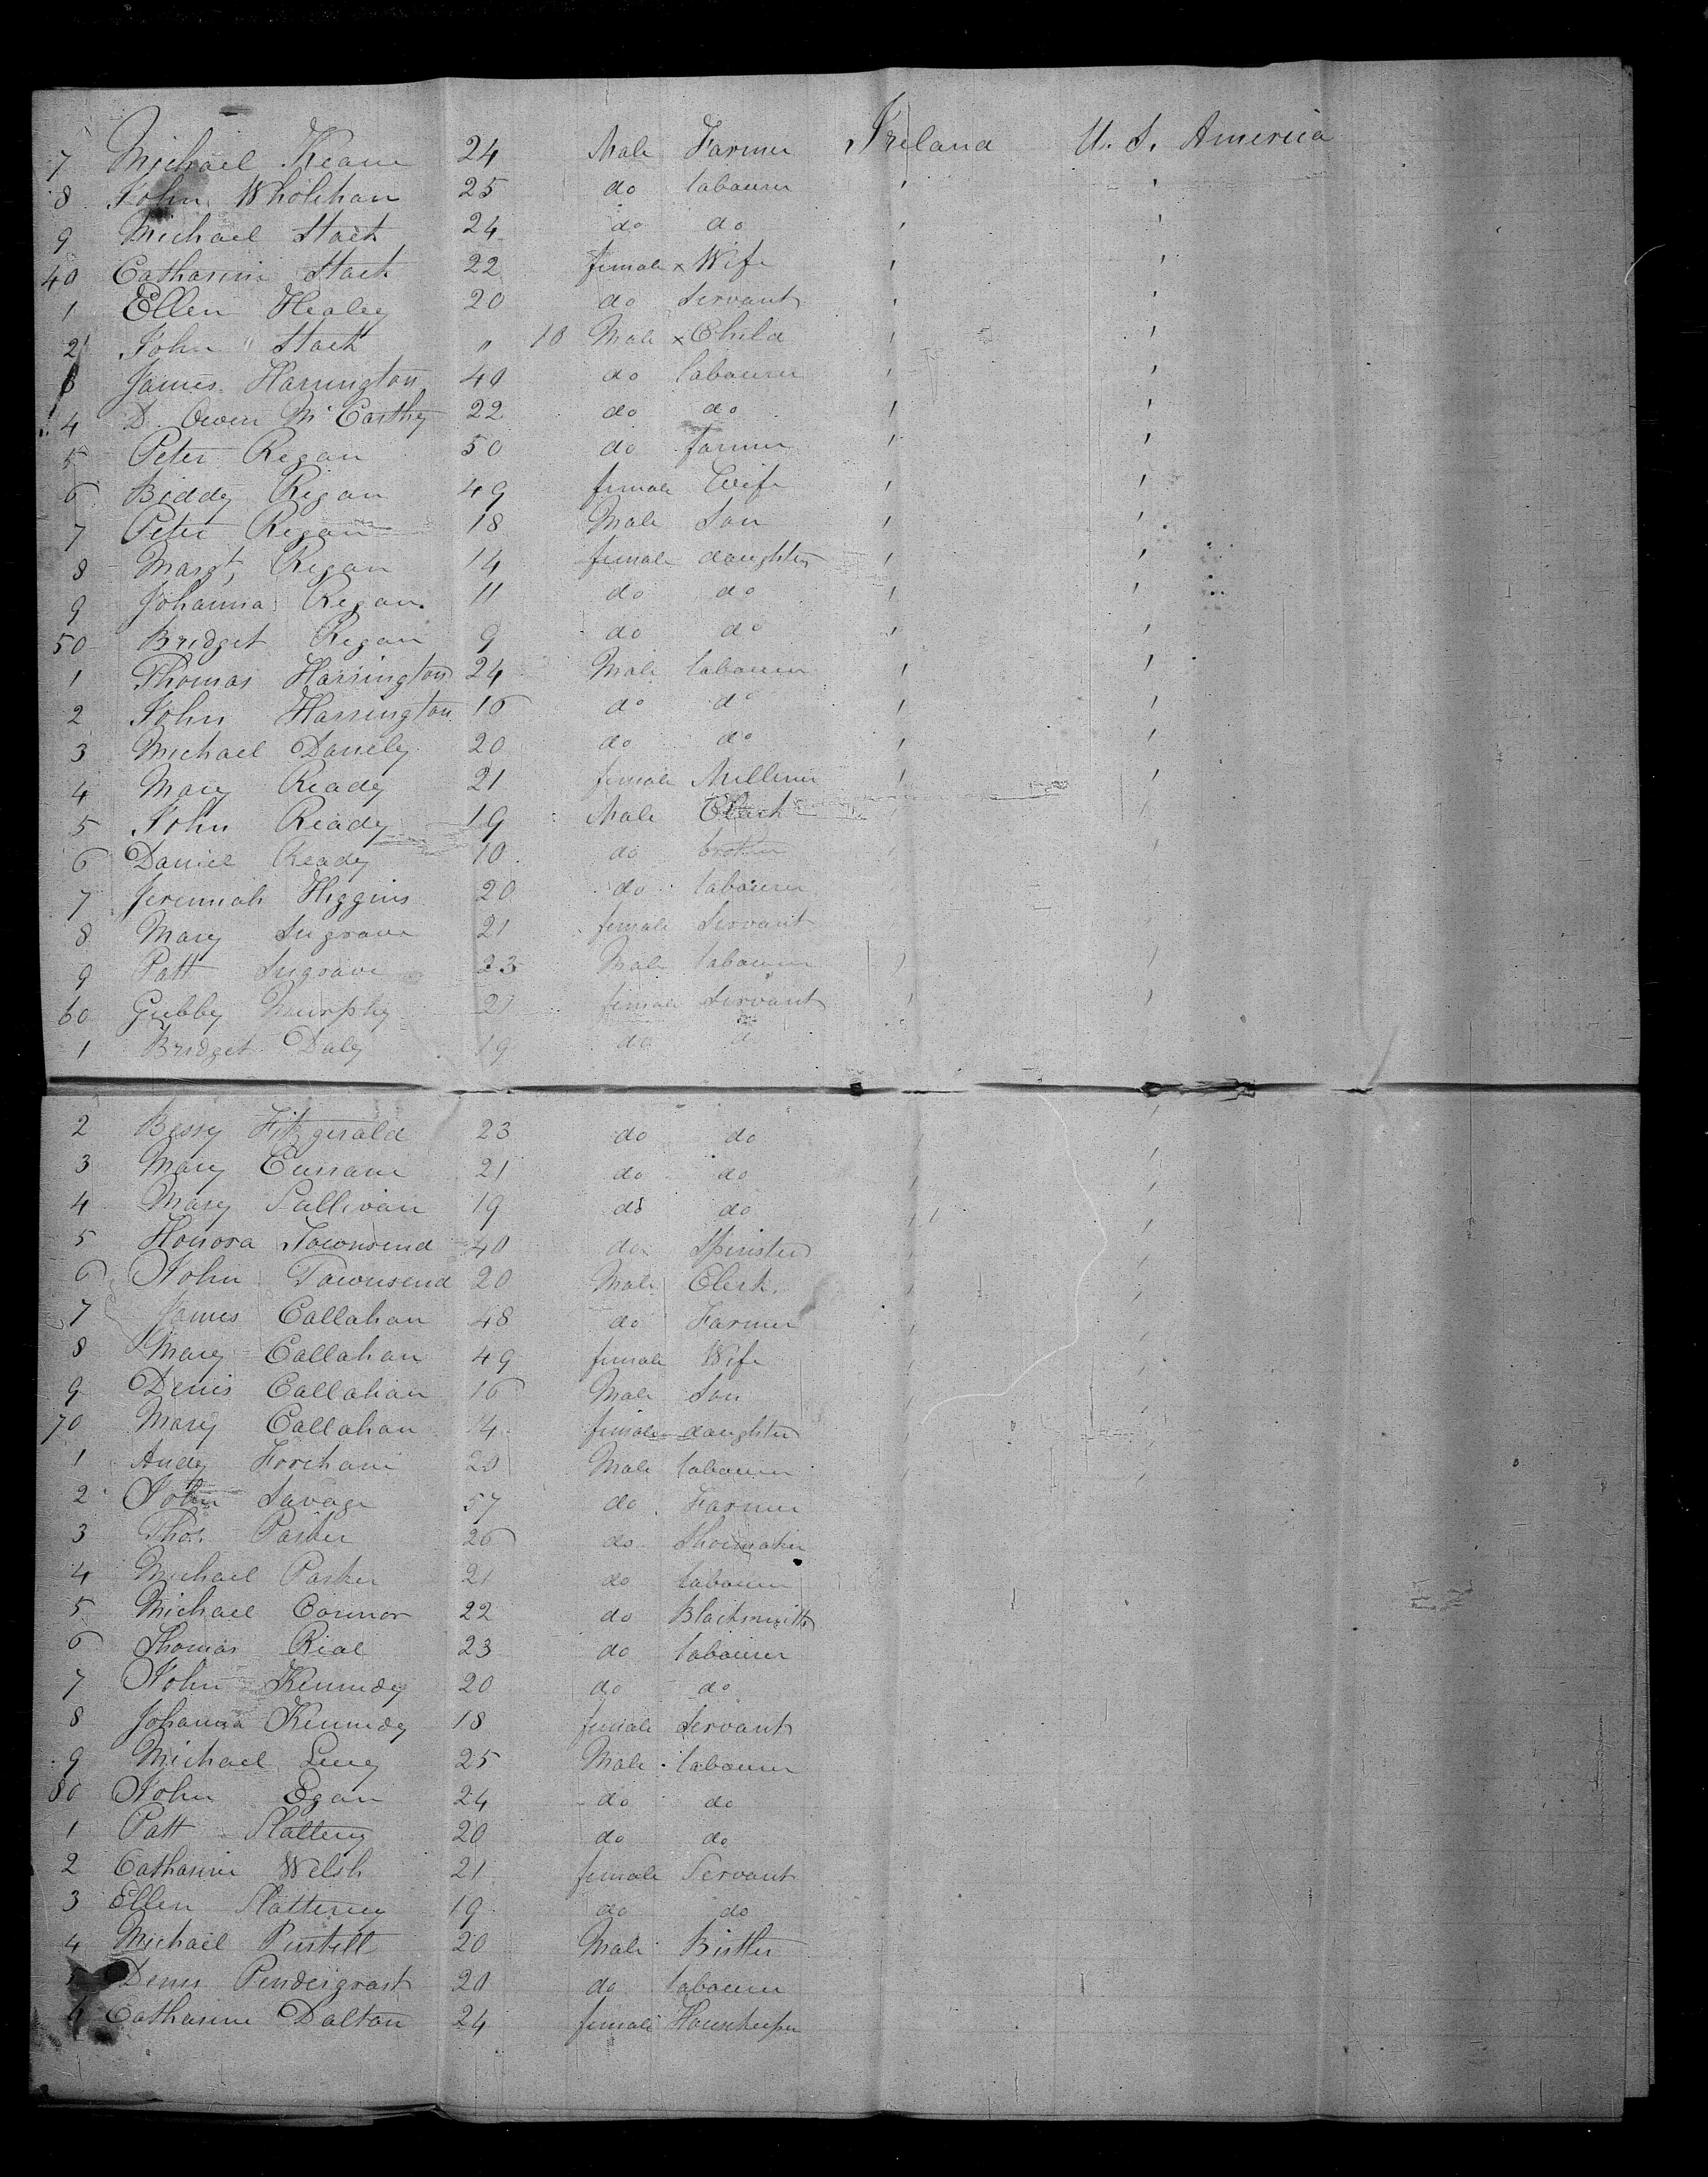 7 Michael Keane 24 Male Farmer Ireland U. S. America
8 John Wholehan 25 do labourer ' '
9 Michael Stack 24 do do ' '
40 Catharine Stack 22 female x Wife ' '
1 Ellen Healey 20 do Servant ' '
2 John " Stack " 10 Male x Child ' '
3 James Harrington 40 do labourer ' '
4 D. Owen McCarthy 22 do do ' '
5 Peter Regan 50 do farmer ' '
6 Biddy Regan 49 female Wife ' '
7 Peter Regan 18 Male Son ' '
8 Margt, Regan 14 female daughter ' '
9 Johanna Regan 11 do do ' '
50 Bridget Regan 9 do do ' '
1 Thomas Harrington 24 Male labourer ' '
2 John Harrington 16 do do ' '
3 Michael Danely 20 do do ' '
4 Mary Ready 21 female Milliner ' '
5 John Ready 19 Male Clerk ' '
6 Daniel Ready 10 do brother ' '
7 Jeremiah Higgins 20 do labourer ' '
8 Mary Sugrave 21 female Servant ' '
9 Patt Sugrave 23 Male labourer ' '
60 Gubby Murphy 21 female Servant ' '
1 Bridget Daly 19 do
2 Bessy Fitzgerald 23 do do ' '
3 Mary Currane 21 do do ' '
4 Mary Sullivan 19 do do ' '
5 Honora Townsend 40 do Spinster ' '
6 John Townsend 20 Male Clerk ' '
7 James Callahan 48 do Farmer ' '
8 Mary Callahan 49 female Wife ' '
9 Denis Callahan 16 Male Son ' '
70 Mary Callahan 14 female daughter ' '
1 Andy 20 Male labourer ' '
2 John Savage 57 do Farmer
3 Thos. Parker 26 do Shoemaker
4 Michael Parker 21 do labourer
5 Michael Connor 22 do Blacksmith
6 Thomas Rial 23 do labourer
7 John Kennedy 20 do do
8 Johanna Kennedy 18 female Servant
9 Michael Lucy 25 Male labourer
80 John Egan 24 do do
1 Patt Slattery 20 do do
2 Catharine Welsh 21 female Servant
3 Ellen Slattery 19 do do
4 Michael 20 Male
5 Denis Pendergrast 20 do labourer
6 Catharine Dalton 24 female Housekeeper